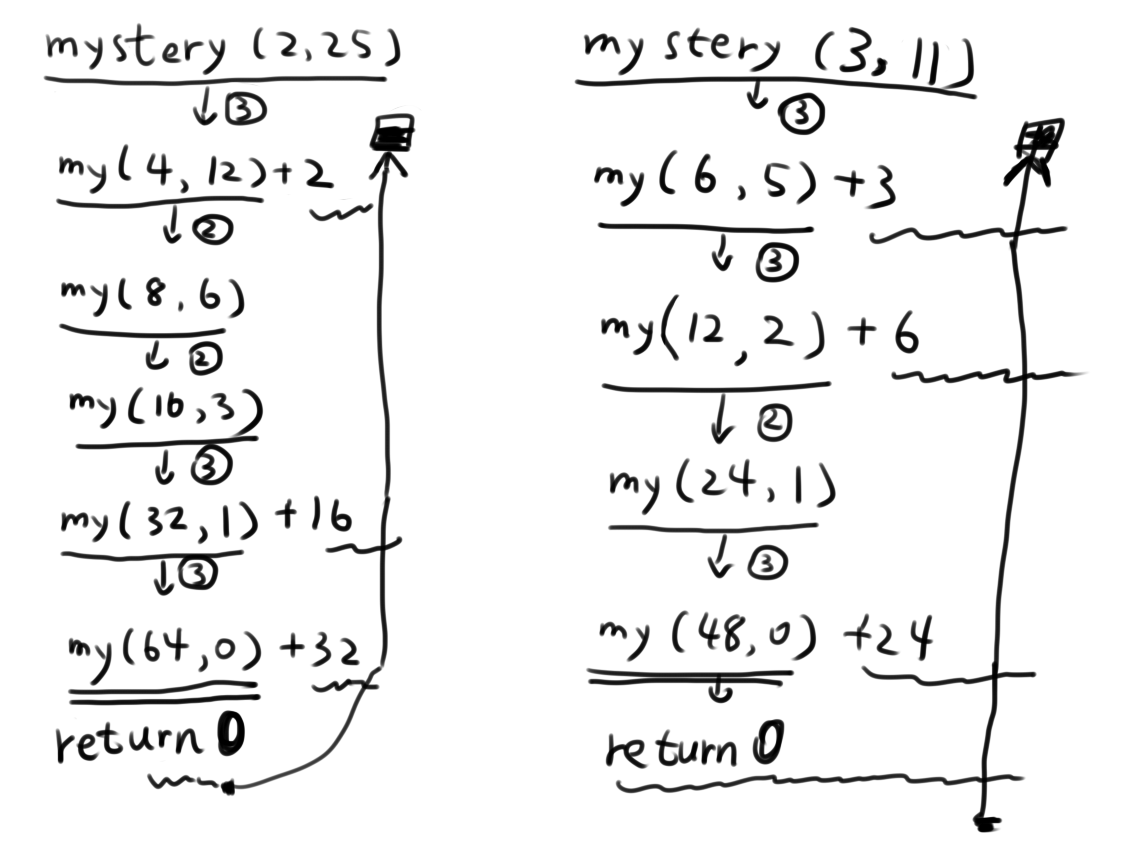 mystery (2,25)
↓ ③
my(4, 12)+2
↓ ②
my(8, 6)
↓ ②
my(16,3)
↓ ③
my(32,1) +16
↓ ③
my(64,0) +32
return 0
mystery (3,11)
↓ ③
my(6,5) +3
↓ ③
my(12,2) + 6
↓ ②
my(24,1)
↓ ③
my (48,0) +24
↓
return 0